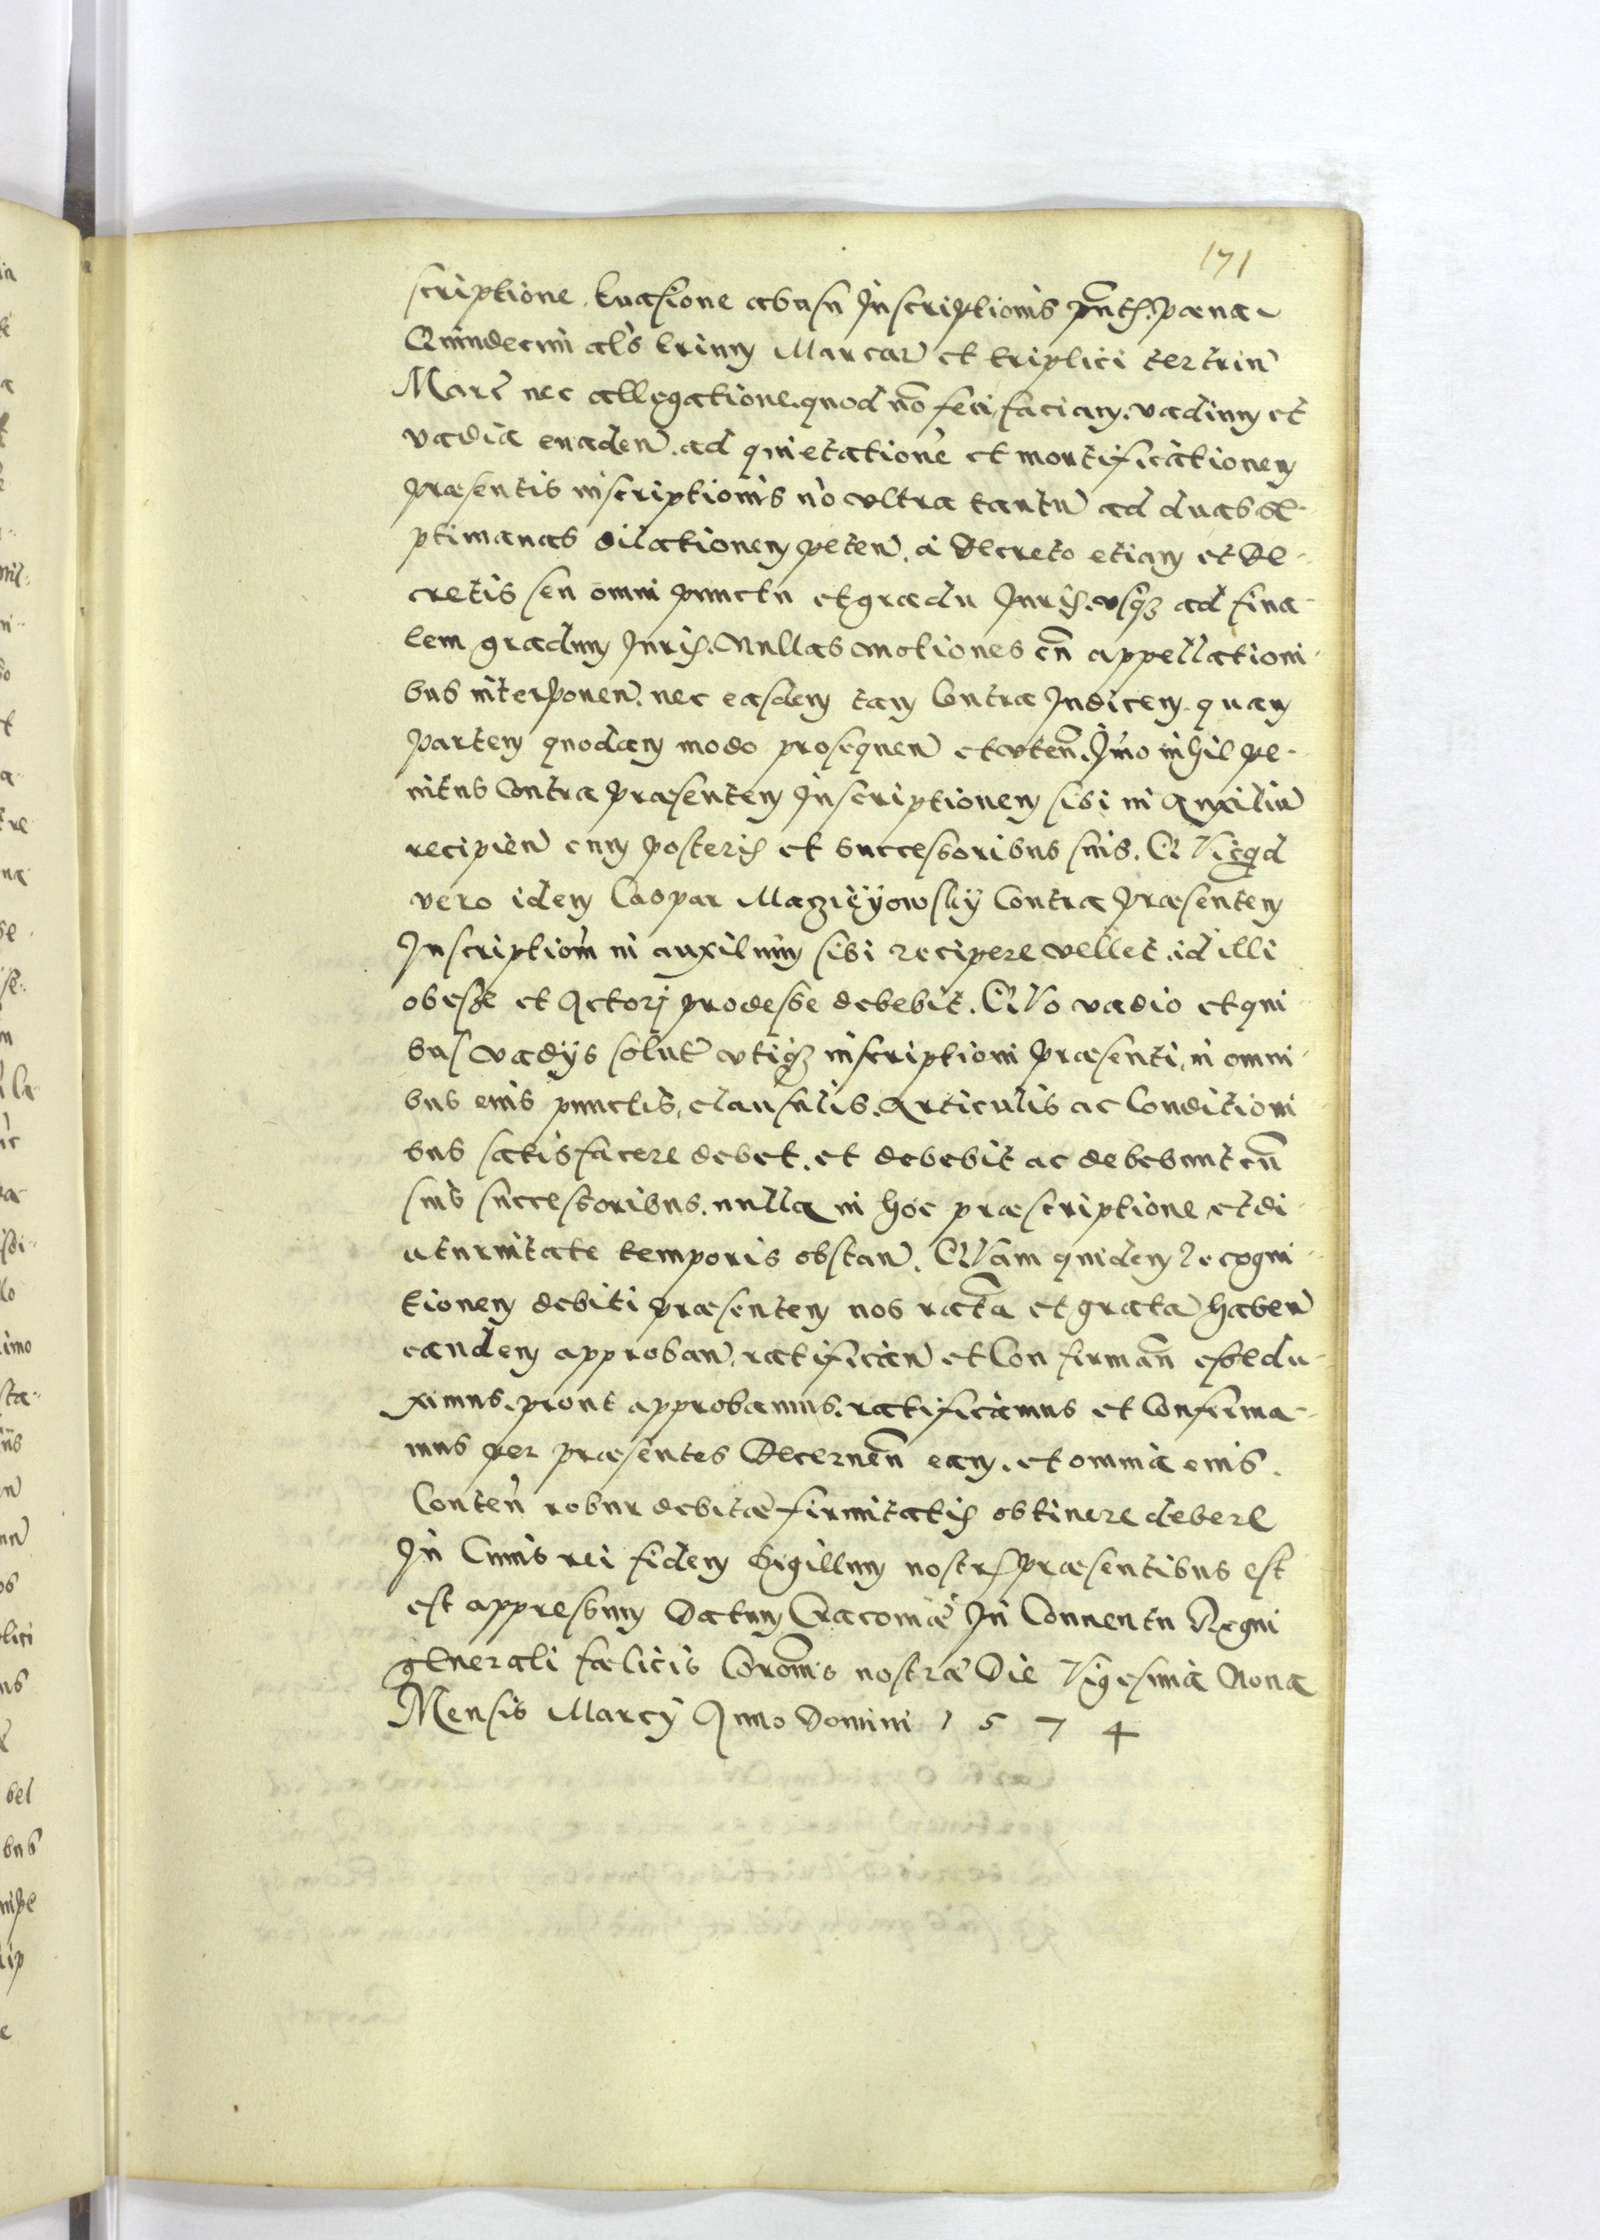 171
scriptione, Euasione abusu Inscriptionis pn̄tis. pæna
Quindecim als trium Marcar̄ et triplici ter trin̄
Marc̄ nec allegatione, quod nō feci, faciam. vadium et
vadia euaden̄. ad quietationē et mortificationem
præsentis inscriptionis nō vltra tantū ad duas se-
ptimanas dilationem peten̄. à Decreto etiam et De-
cretis seu omni punctu et gradu Juris. vsq3 ad fina-
lem gradum Juris. Nullas motiones cū appellationi-
bus interponen̄. nec easdem tam Contra Judicem. quam
Partem quodam modo prosequen̄ et vten̄. Imo nihil pe-
nitus Contra Præsentem Inscriptionem sibi in Auxiliū
recipien̄ cum posteris et Successoribus suis. Q Vicqd
vero idem Caspar Maczieyowsky Contra Præsentem
Inscriptiom̄ in auxilium sibi recipere vellet. id illi
obesse et Actorj prodesse debebit. QVo vadio et qui-
bus vadijs solut̄ vtiq3 inscriptioni Præsenti, in omni-
bus eius punctis, clausulis. Articulis ac Conditioni-
bus satisfacere debet. et debebit ac debebunt cū
suis successoribus. nulla in hoc præscriptione et di-
uturnitate temporis obstan̄. QVam quidem Recogni-
tionem debiti Præsentem nos ratā et gratā haben̄
eandem approban̄. ratifican̄ et Confirman̄ esse du-
ximus. prout approbamus. ratificamus et Confirma-
mus per præsentes Decernen̄ eam. et omnia eius.
Conten̄ robur debitæ firmitatis obtinere debere
In Cuius rei fidem Sigillum nostr̄ Præsentibus est
est appressum Datum Cracouiæ In Conuentu Regni
generali fælicis Corōnis nostræ Die Vigesima Nona
Mensis Marcij Anno Domini 1574